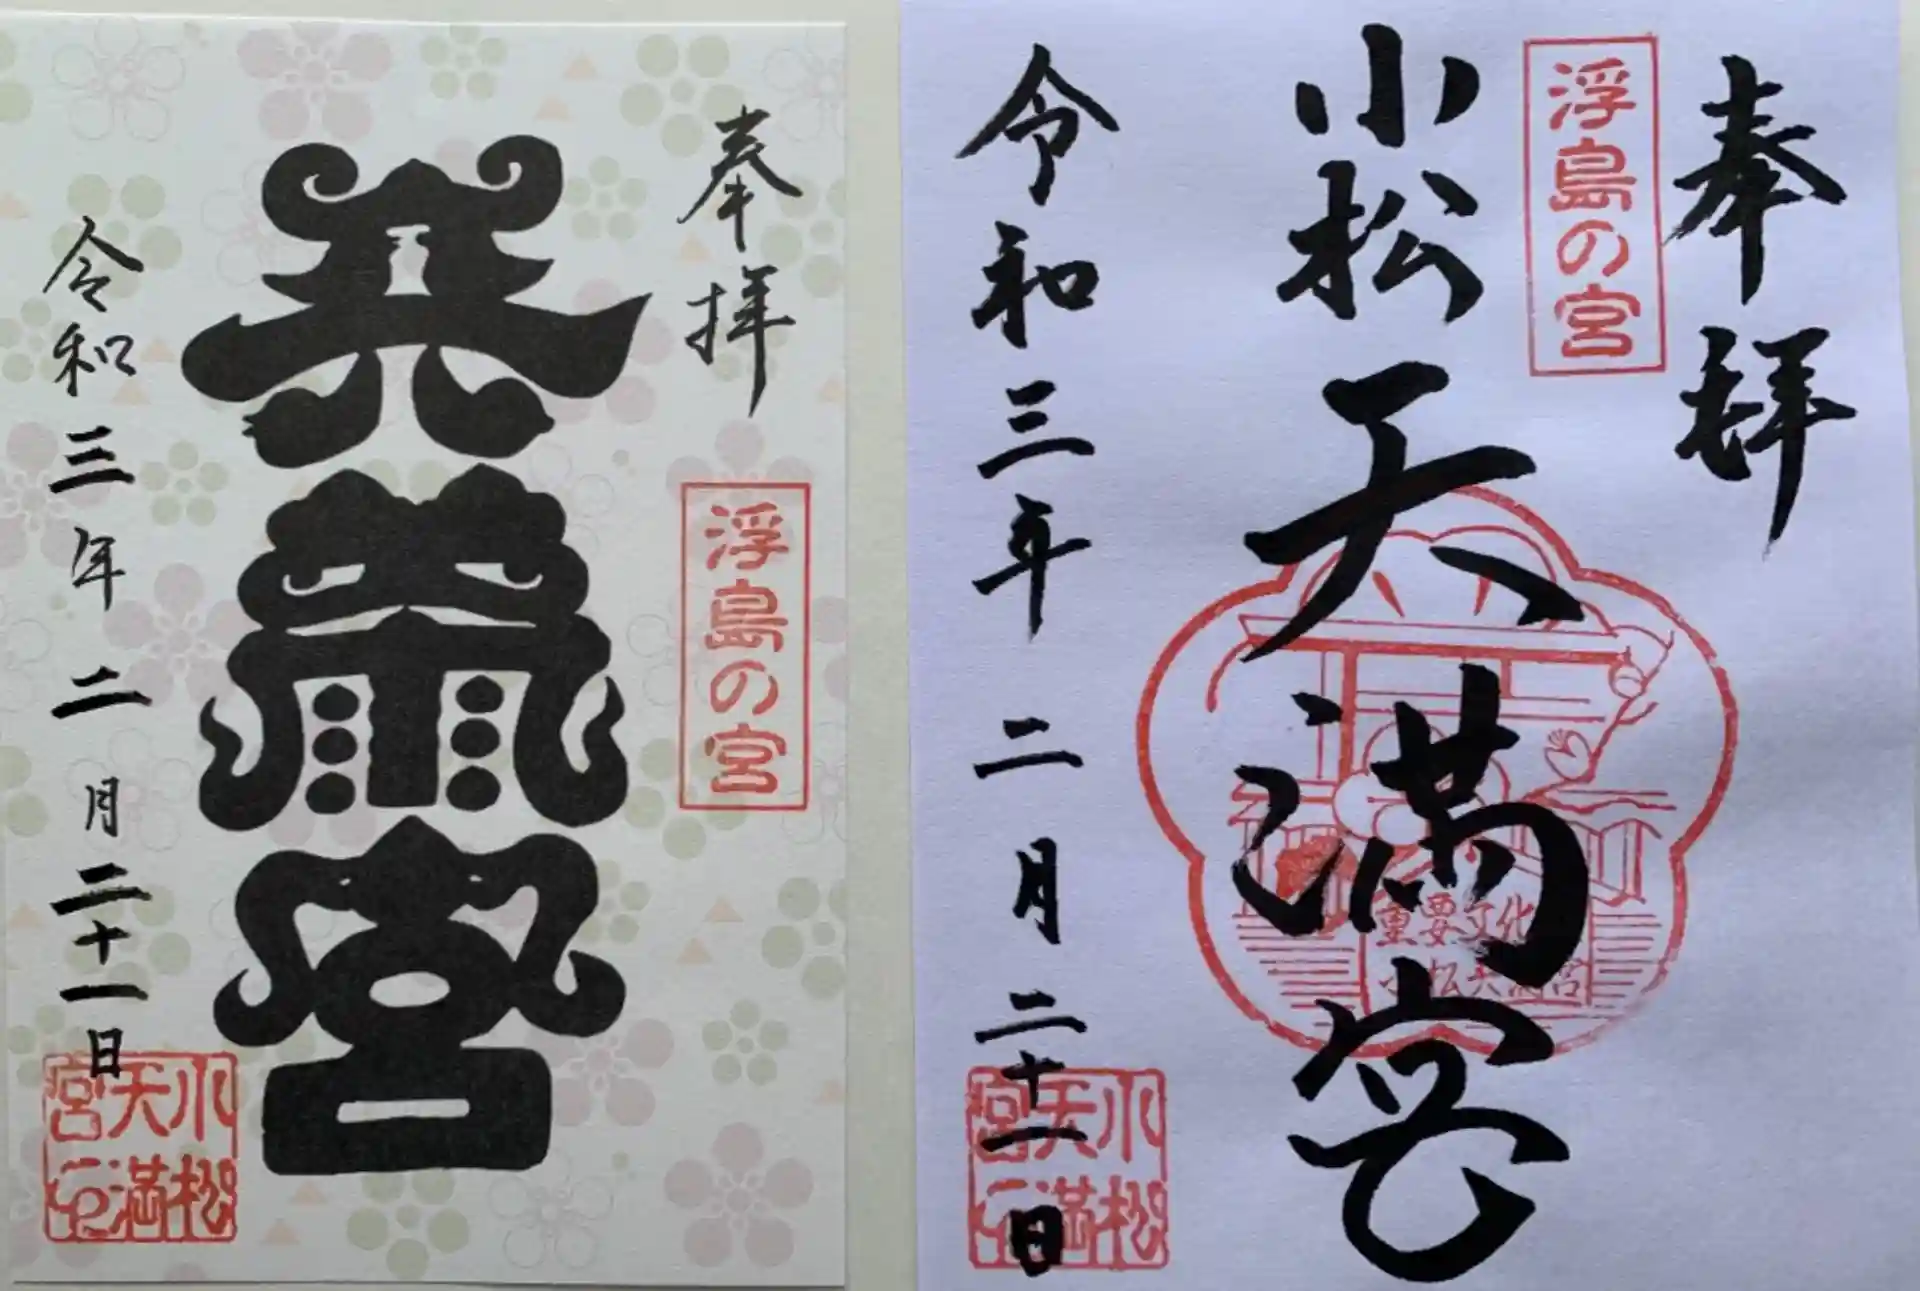 奉拝
浮島の宮
天満宮
令和三年 二月二十一日
小松
天満
宮印
奉拝
浮島の宮
小松天満宮
重要文化
小松天満宮
令和三年 二月二十一日
小松
天満
宮印